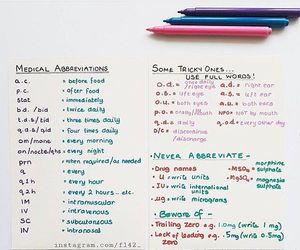 MEDICAL ABBREVIATIONS
a.c. = before food
p.c. = after food
stat = immediately
b.d/bid = twice daily
t.d.s/tid = three times daily
q.d.s/qid = four times daily
om/mane = every morning
on/nocte = every night
prn = when required/as needed
q = every
q1h = every hour
q2h = every 2 hours .. etc.
IM = intramuscular
IV = intravenous
SC = subcutaneous
IN = intranasal
instagram.com/fl42_
SOME TRICKY ONES...
USE FULL WORDS!
o.d. = once daily / right eye
a.d. = right ear
o.s. = left eye
a.s. = left ear
o.u. = both eyes
a.u. = both ears
p.o. = orally/mouth
NPO = NOT by mouth
q.d. = daily
q.o.d = every other day
d/c = discontinue / discharge
NEVER ABBREVIATE -
- Drug names
- U = write units
- IU = write international units
- µg = write micrograms
- MSO4 = morphine sulphate
- MgSO4 = magnesium sulphate
BEWARE OF -
- Trailing zero e.g. 1.0mg (write 1 mg)
- Lack of leading zero e.g. .5mg (write 0.5mg)